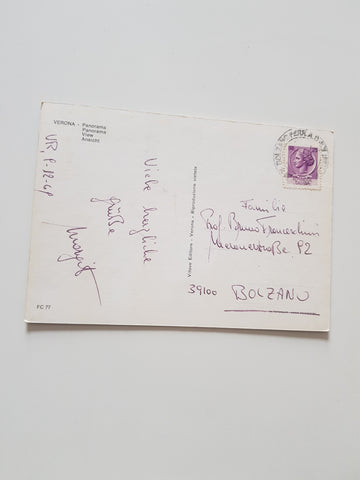 VERONA - Panorama
Panorama
View
Ansicht
VR 9-12-69
Viele herzliche
Grüße
Margit
FC 77
Vitore Editore - Verona - Riproduzione vietata
Familie
Prof. Bruno Franceschini
Meranerstraße 92
39100 BOLZANO